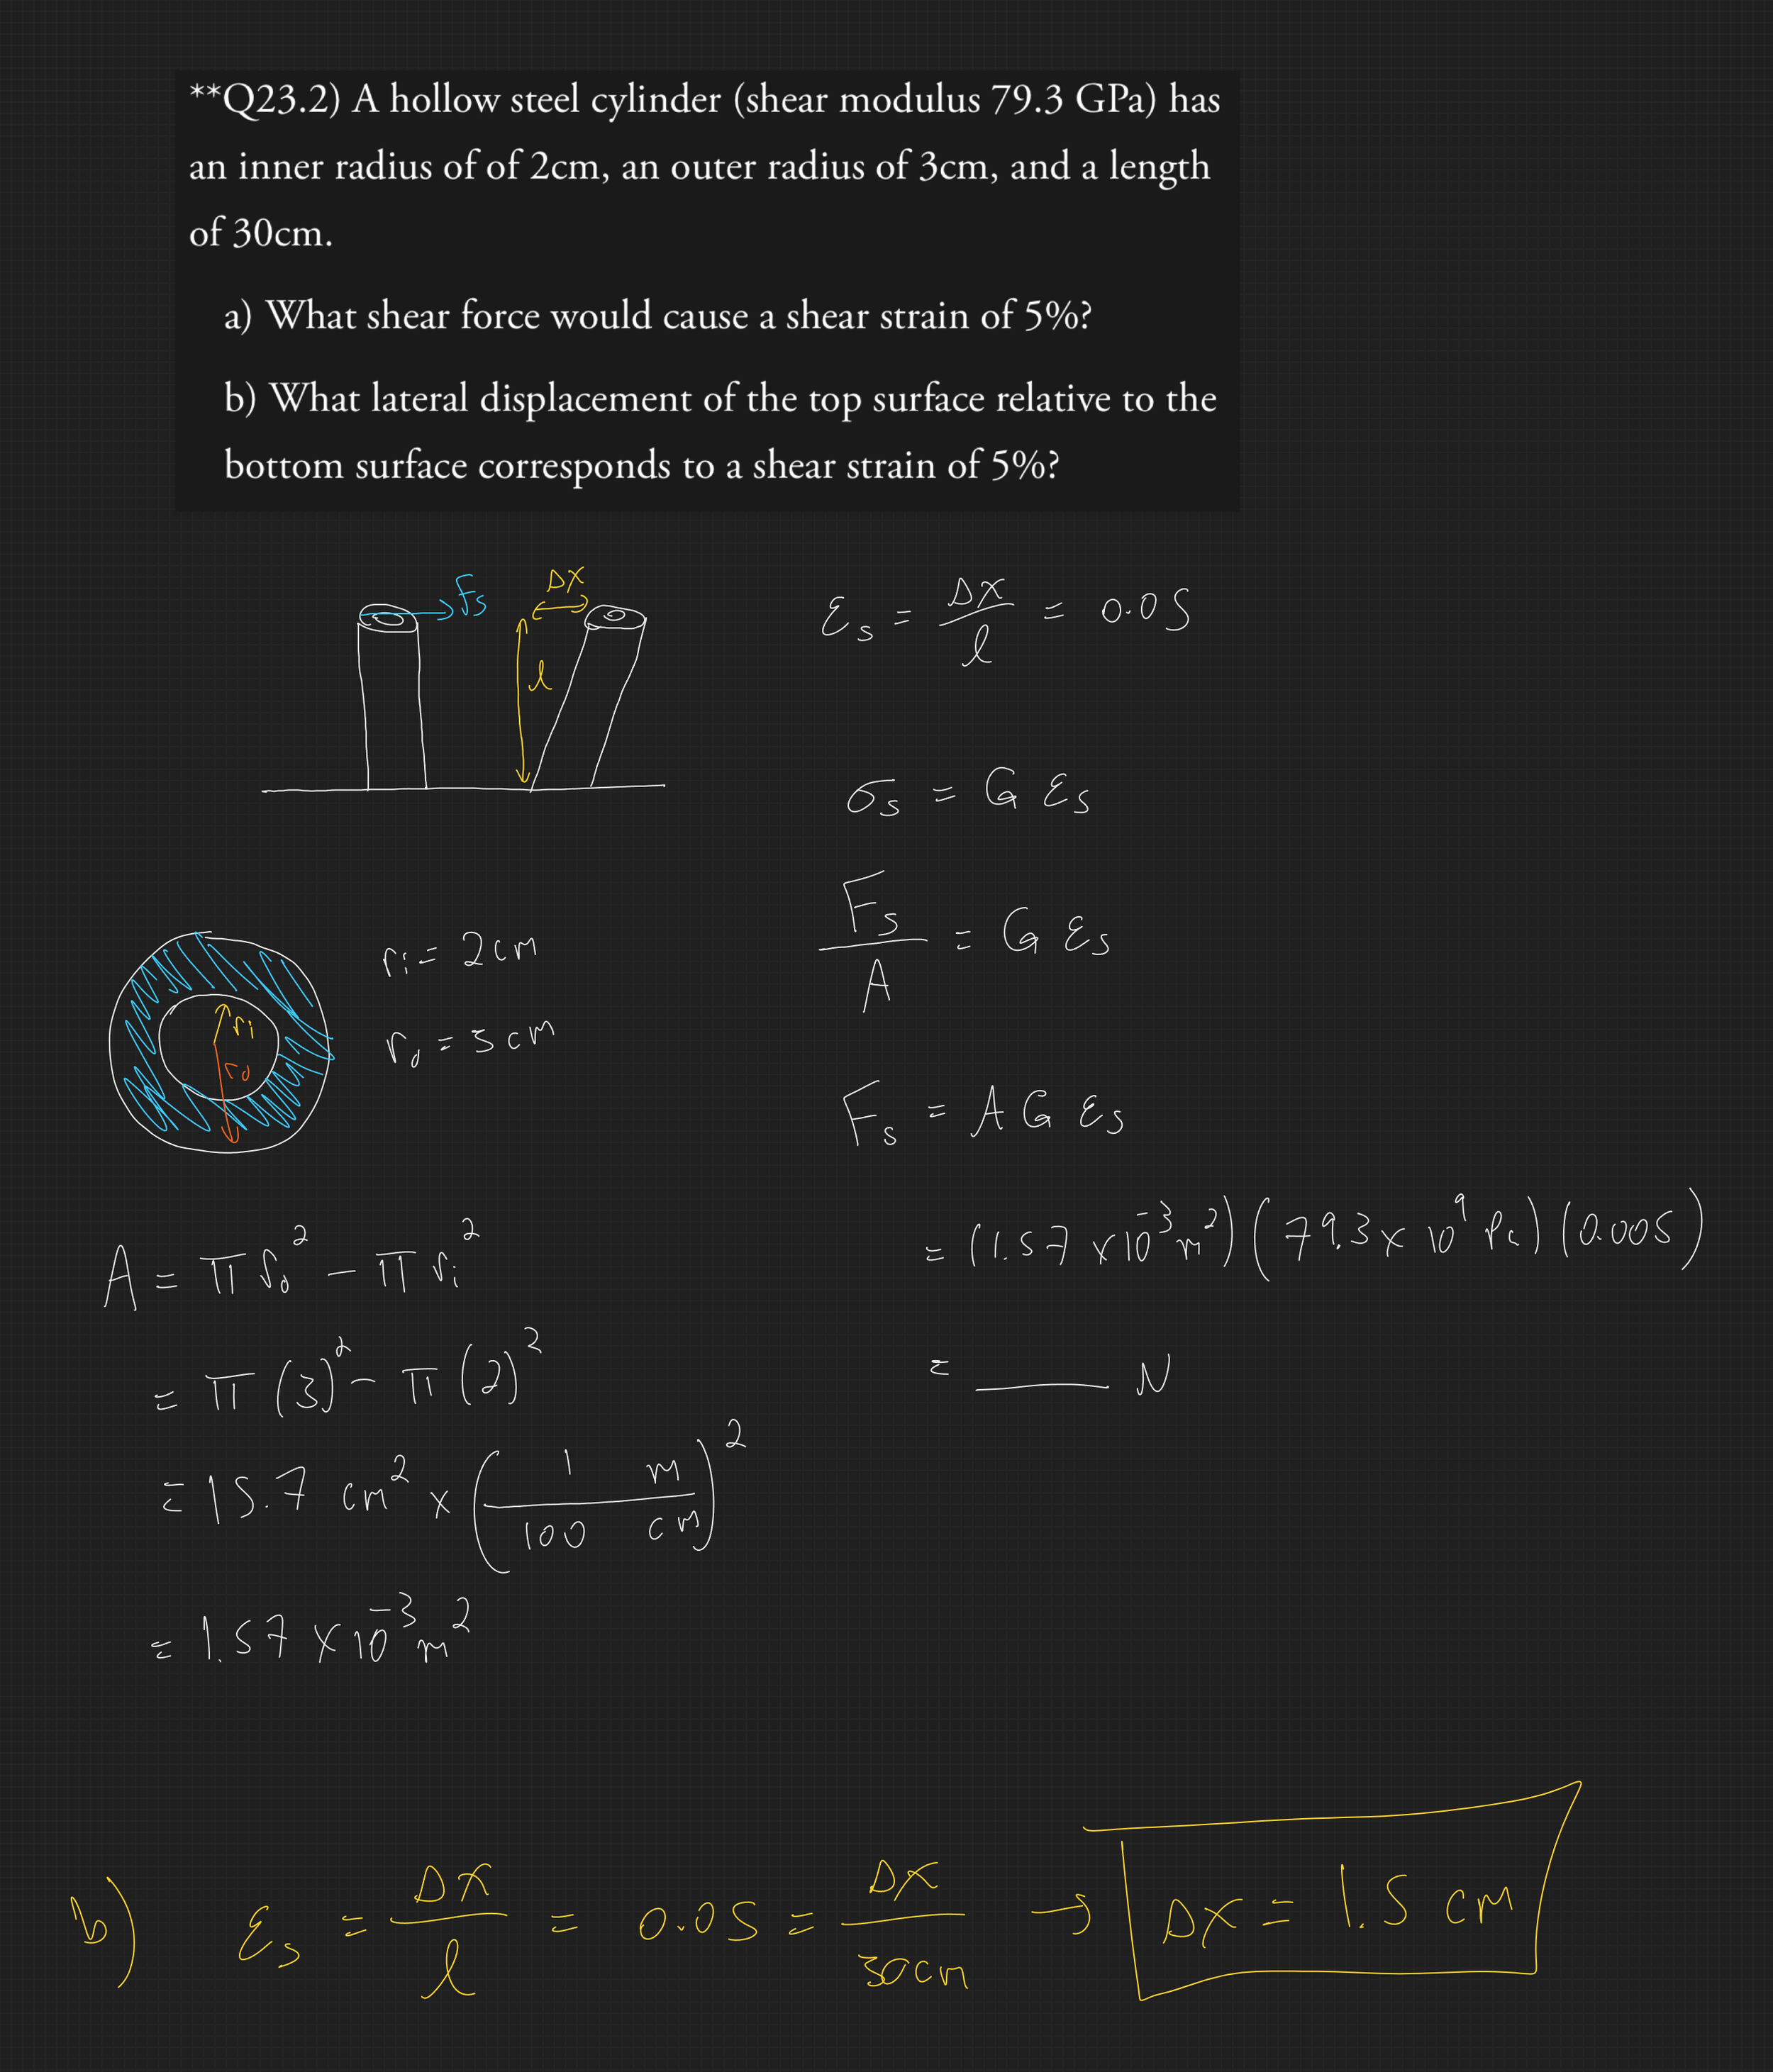 **Q23.2) A hollow steel cylinder (shear modulus 79.3 GPa) has
an inner radius of of 2cm, an outer radius of 3cm, and a length
of 30cm.
a) What shear force would cause a shear strain of 5%?
b) What lateral displacement of the top surface relative to the
bottom surface corresponds to a shear strain of 5%?
Fs
Δx
l
εs = Δx / l = 0.05
σs = G εs
Fs / A = G εs
ri
ro
ri = 2cm
ro = 3cm
Fs = A G εs
= (1.57 × 10⁻³ m²) (79.3 × 10⁹ Pa) (0.005)
= ____ N
A = π ro² − π ri²
= π (3)² − π (2)²
= 15.7 cm² × (1 m / 100 cm)²
= 1.57 × 10⁻³ m²
b) εs = Δx / l = 0.05 = Δx / 30cm → Δx = 1.5 cm